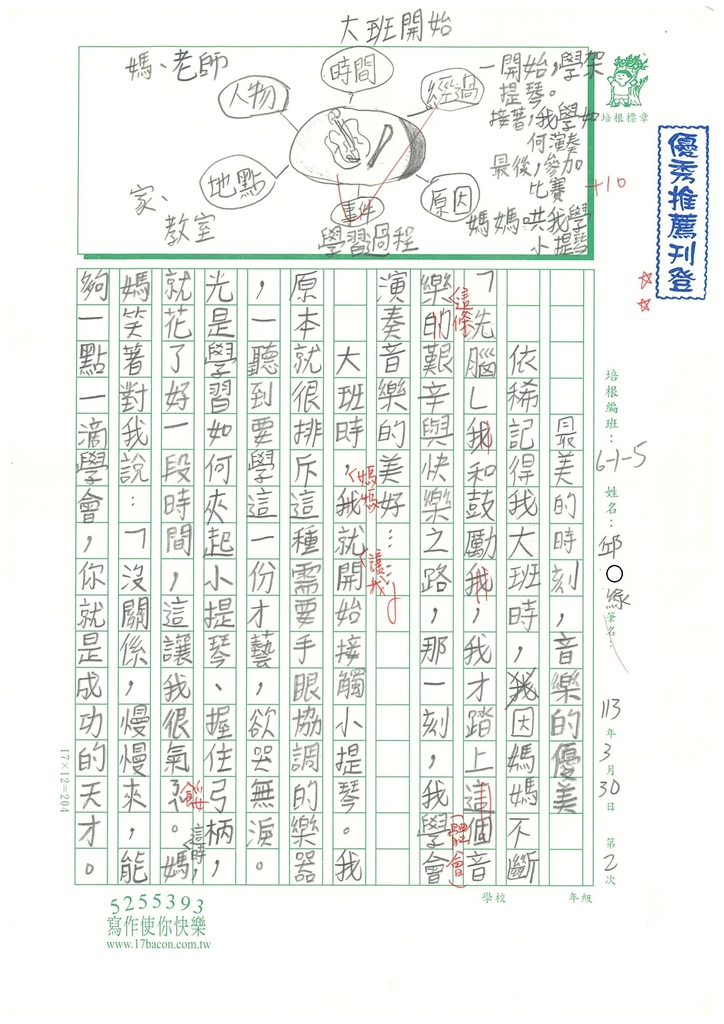 大班開始
媽、老師
時間
人物
經過
地點
原因
事件
家、
教室
學習過程
一開始，學架
提琴。
接著，我學如
何演奏
最後，參加
比賽
+10
媽媽哄我學
小提琴
培根標章
優秀推薦刊登
培根編班：6-1-5 姓名：邱○緣 筆名：
113年3月30日 第2次
學校 年級
最美的時刻，音樂的優美
依稀記得我大班時，我因媽媽不斷
「洗腦」我和鼓勵我，我才踏上這個音
樂的艱辛與快樂之路，那一刻，我學會
演奏音樂的美好……
大班時，我就開始接觸小提琴。我
原本就很排斥這種需要手眼協調的樂器
，一聽到要學這一份才藝，欲哭無淚。
光是學習如何夾起小提琴、握住弓柄，
就花了好一段時間，這讓我很氣餒。媽
媽笑著對我說：「沒關係，慢慢來，能
夠一點一滴學會，你就是成功的天才。
這條
體會
媽媽
讓我
這時，
17×12=204
5255393
寫作使你快樂
www.17bacon.com.tw